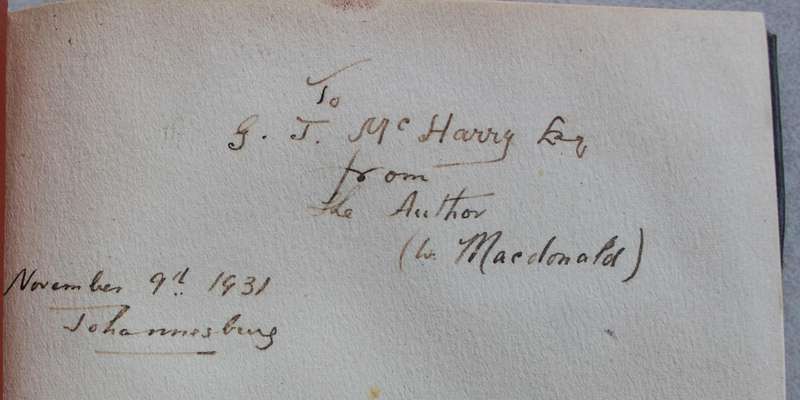 To
G. J. McHarry Esq
from
the Author
(W. Macdonald)
November 9th 1931
Johannesburg